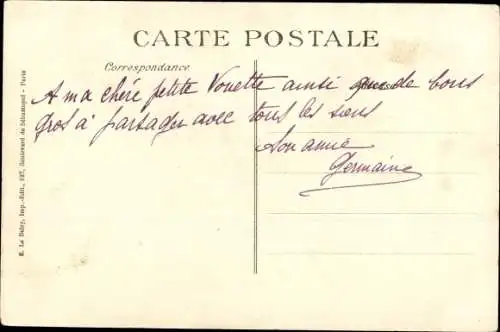 CARTE POSTALE
Correspondance
A ma chéré petite Nonette ainsi que de bons
gros à partager avec tous les siens
Son amie
Germaine
E. Le Deley, Imp.-Édit., 127, Boulevard de Sébastopol - Paris